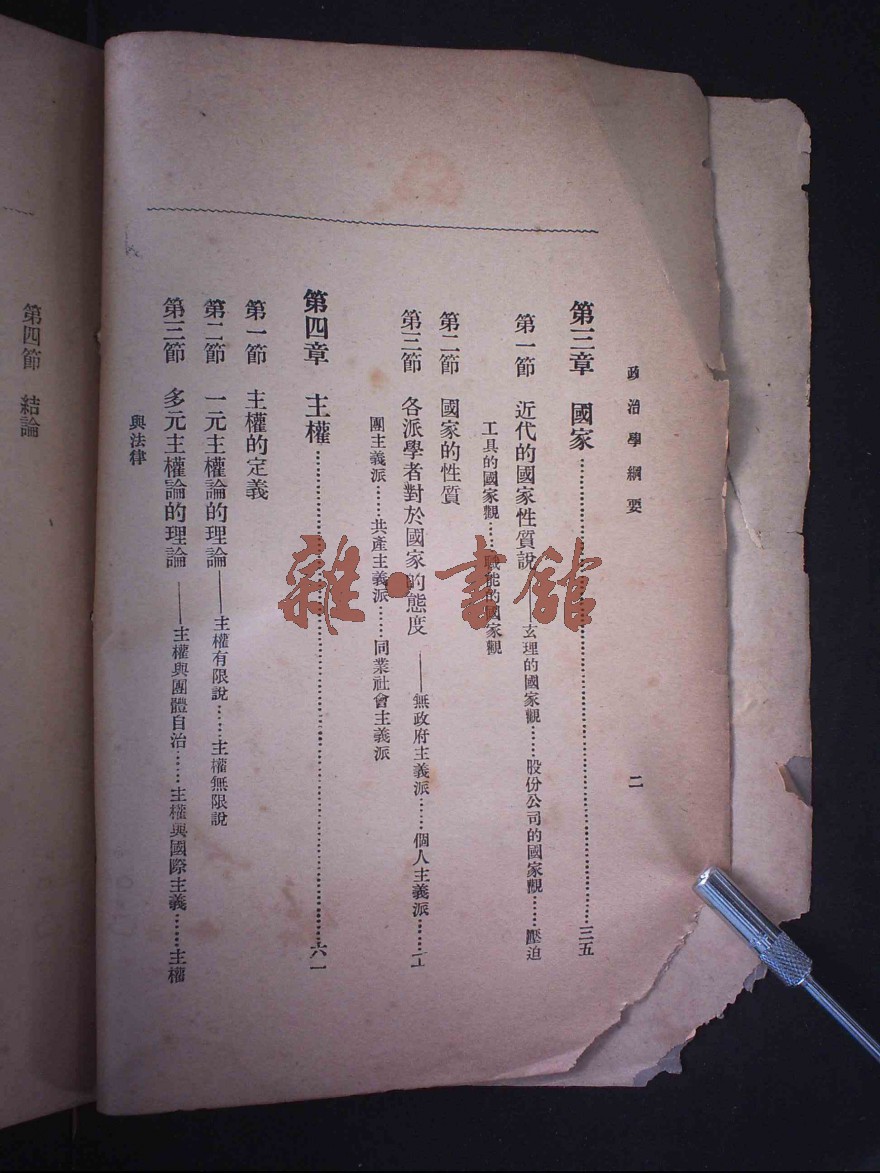 政治學綱要
二
第三章　國家……三五
第一節　近代的國家性質說——玄理的國家觀……股份公司的國家觀……壓迫
工具的國家觀……職能的國家觀
第二節　國家的性質
第三節　各派學者對於國家的態度——無政府主義派……個人主義派……
團主義派……共產主義派……同業社會主義派
第四章　主權……六一
第一節　主權的定義
第二節　一元主權論的理論——主權有限說……主權無限說
第三節　多元主權論的理論——主權與團體自治……主權與國際主義……主權
與法律
第四節　結論
雜·書館